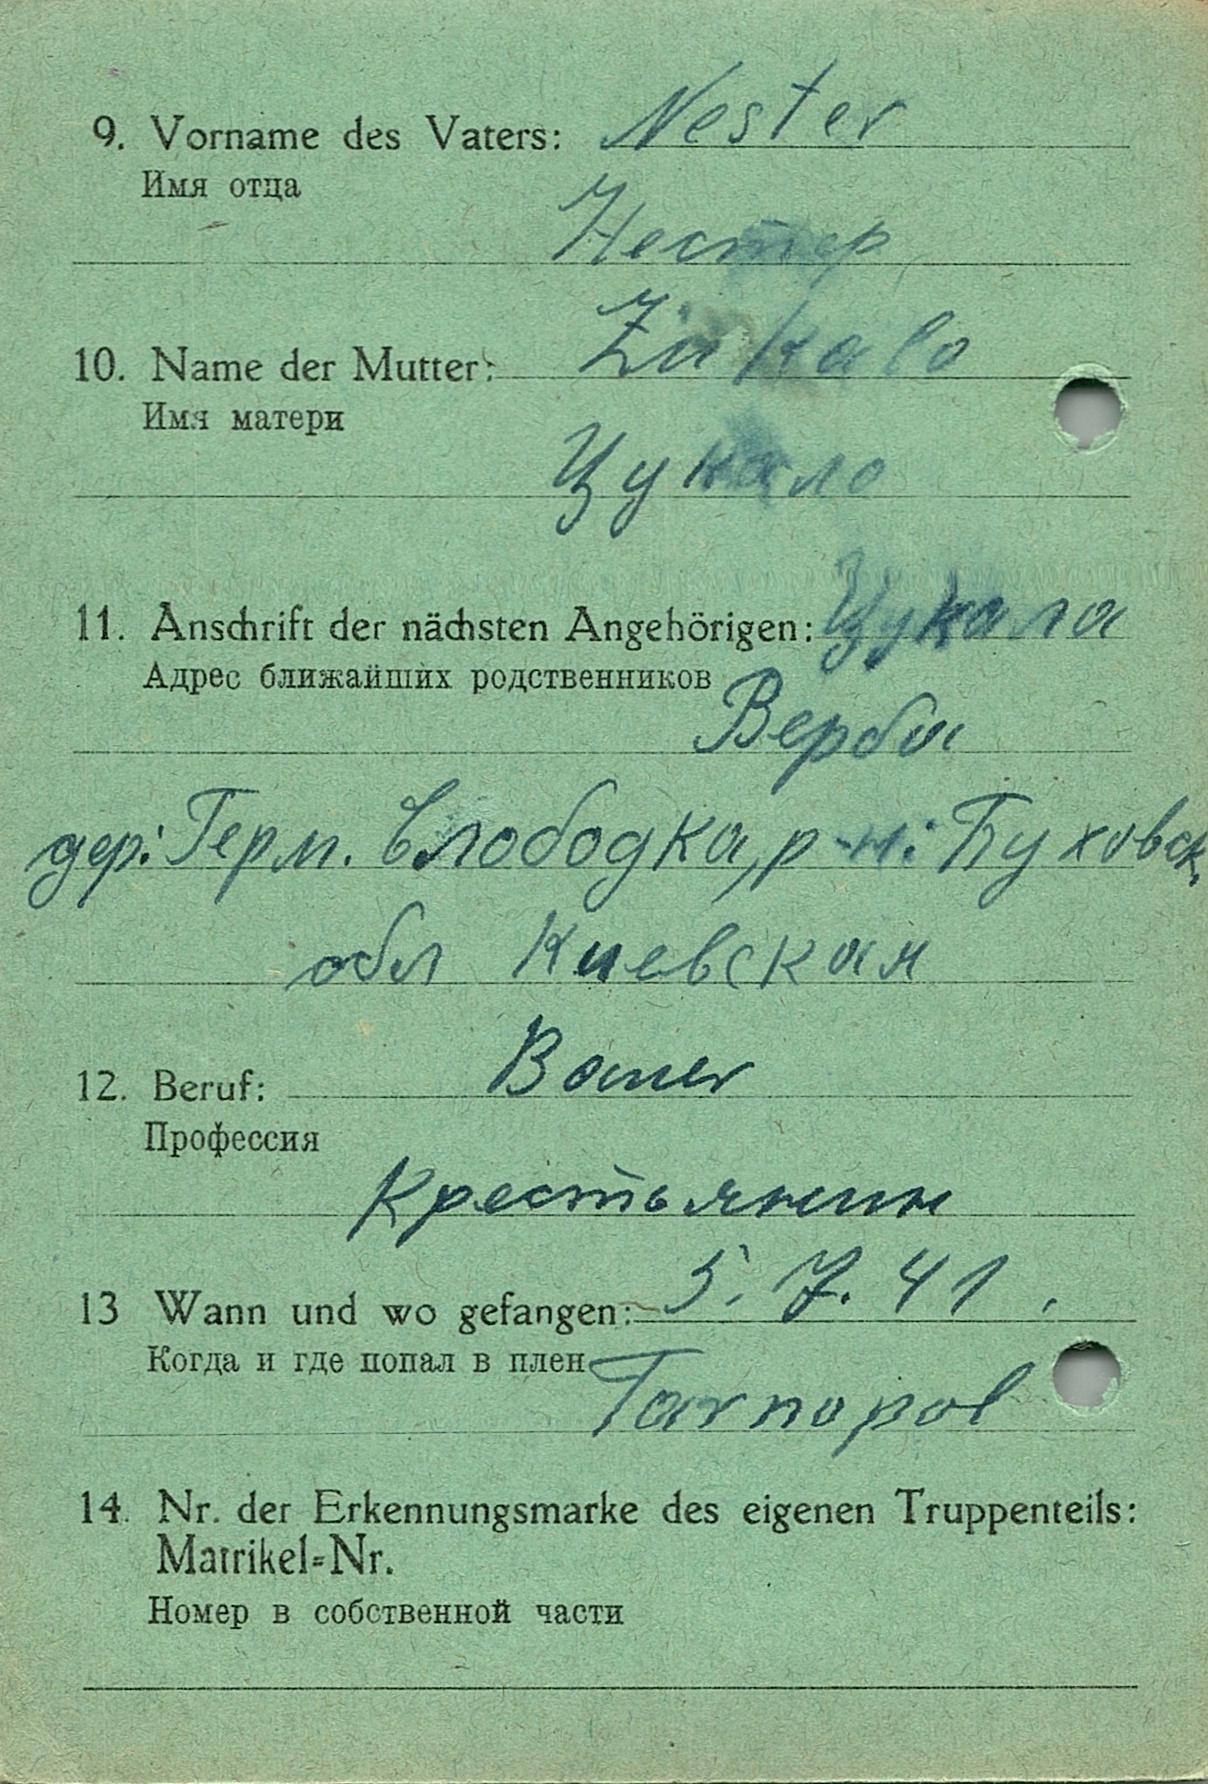 9. Vorname des Vaters: Nester
Имя отца
Нестер
10. Name der Mutter: Zukalo
Имя матери
Цукало
11. Anschrift der nächsten Angehörigen: Цукала
Адрес ближайших родственников
Верба
дер: Герм. Слободка, р-н: Буховск.
обл Киевская
12. Beruf: Bauer
Профессия
Крестьянин
13 Wann und wo gefangen: 5. 7. 41.
Когда и где попал в плен
Tarnopol
14. Nr. der Erkennungsmarke des eigenen Truppenteils:
Matrikel=Nr.
Номер в собственной части